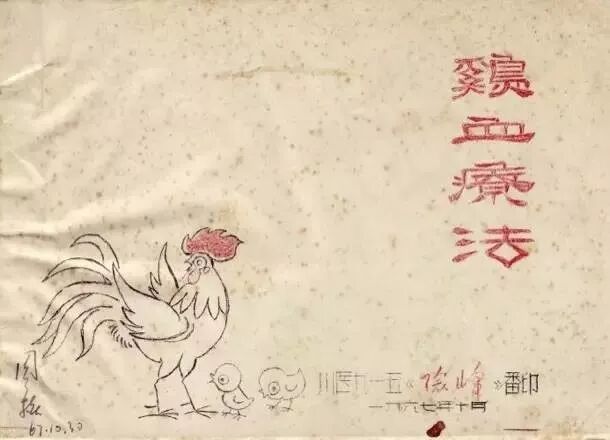 鷄血療法
川医九一五《險峰》翻印
一九六七年十月
67.10.30